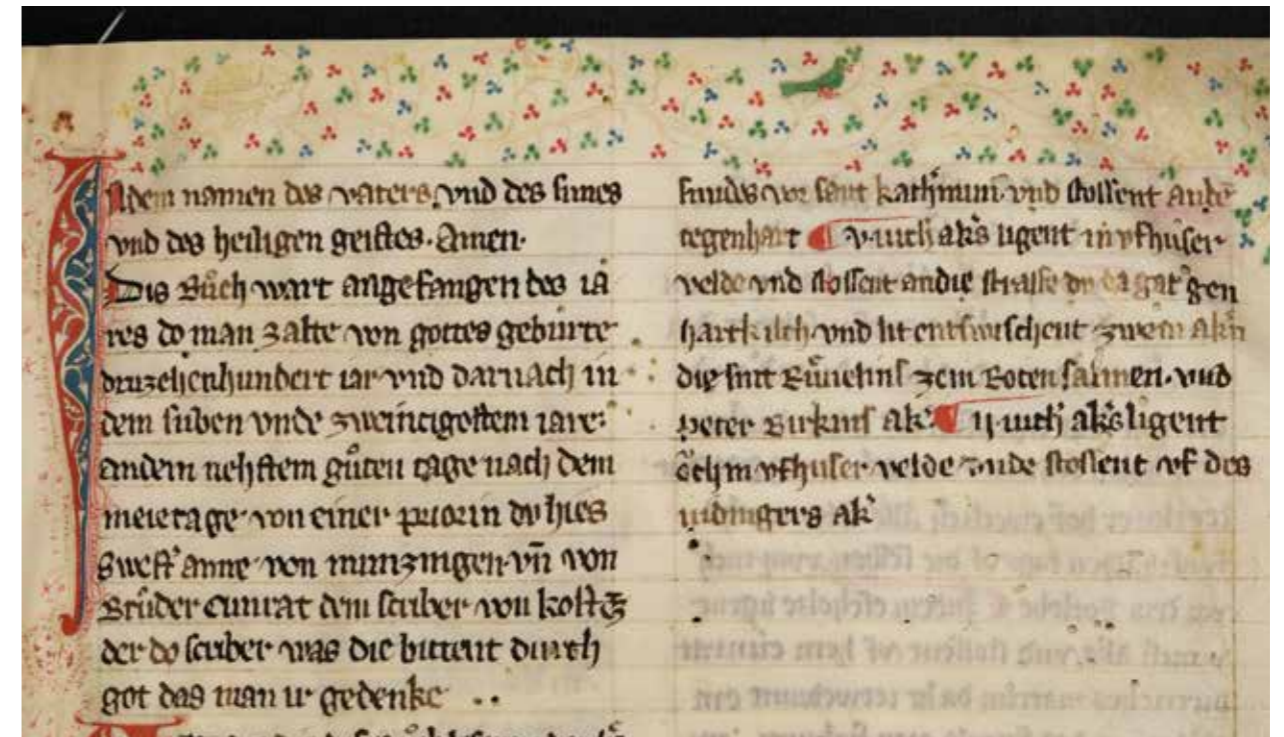 In dem namen des vaters vnd des sunes
vnd des heiligen geistes. Amen.
Dis Bůch wart angefangen des ia
res do man zalte von gottes geburte
druzehenhundert iar vnd darnach in
dem siben vnde zweincigostem iare:
an dem nehstem gůten tage nach dem
meietage von einer priorin dv hies
Swest᾿ anne von munzingen vn̄ von
Brůder Cunrat dem scriber von kost
der do scriber was die bittent durch
got das man ir gedenke ..
vor sant kath᾿inun. vnd stossent an
tegenhart ¶ ligent in vfhuser
velde vnd stossent an die strasse dv da gat gen
hartkilch vnd lit entzwischent zwein ak᾿n
die sint zem Roten vnd
peter ak᾿ ¶ ij iuch᾿ ak᾿s ligent
ŏch in vfhuser velde vnde stossent vf des
ak᾿